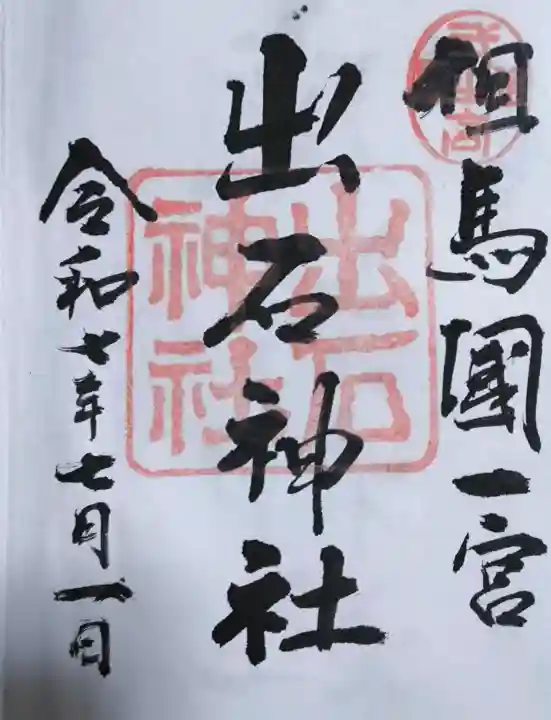 但馬國一宮
出石神社
出石
神社
令和七年七月一日